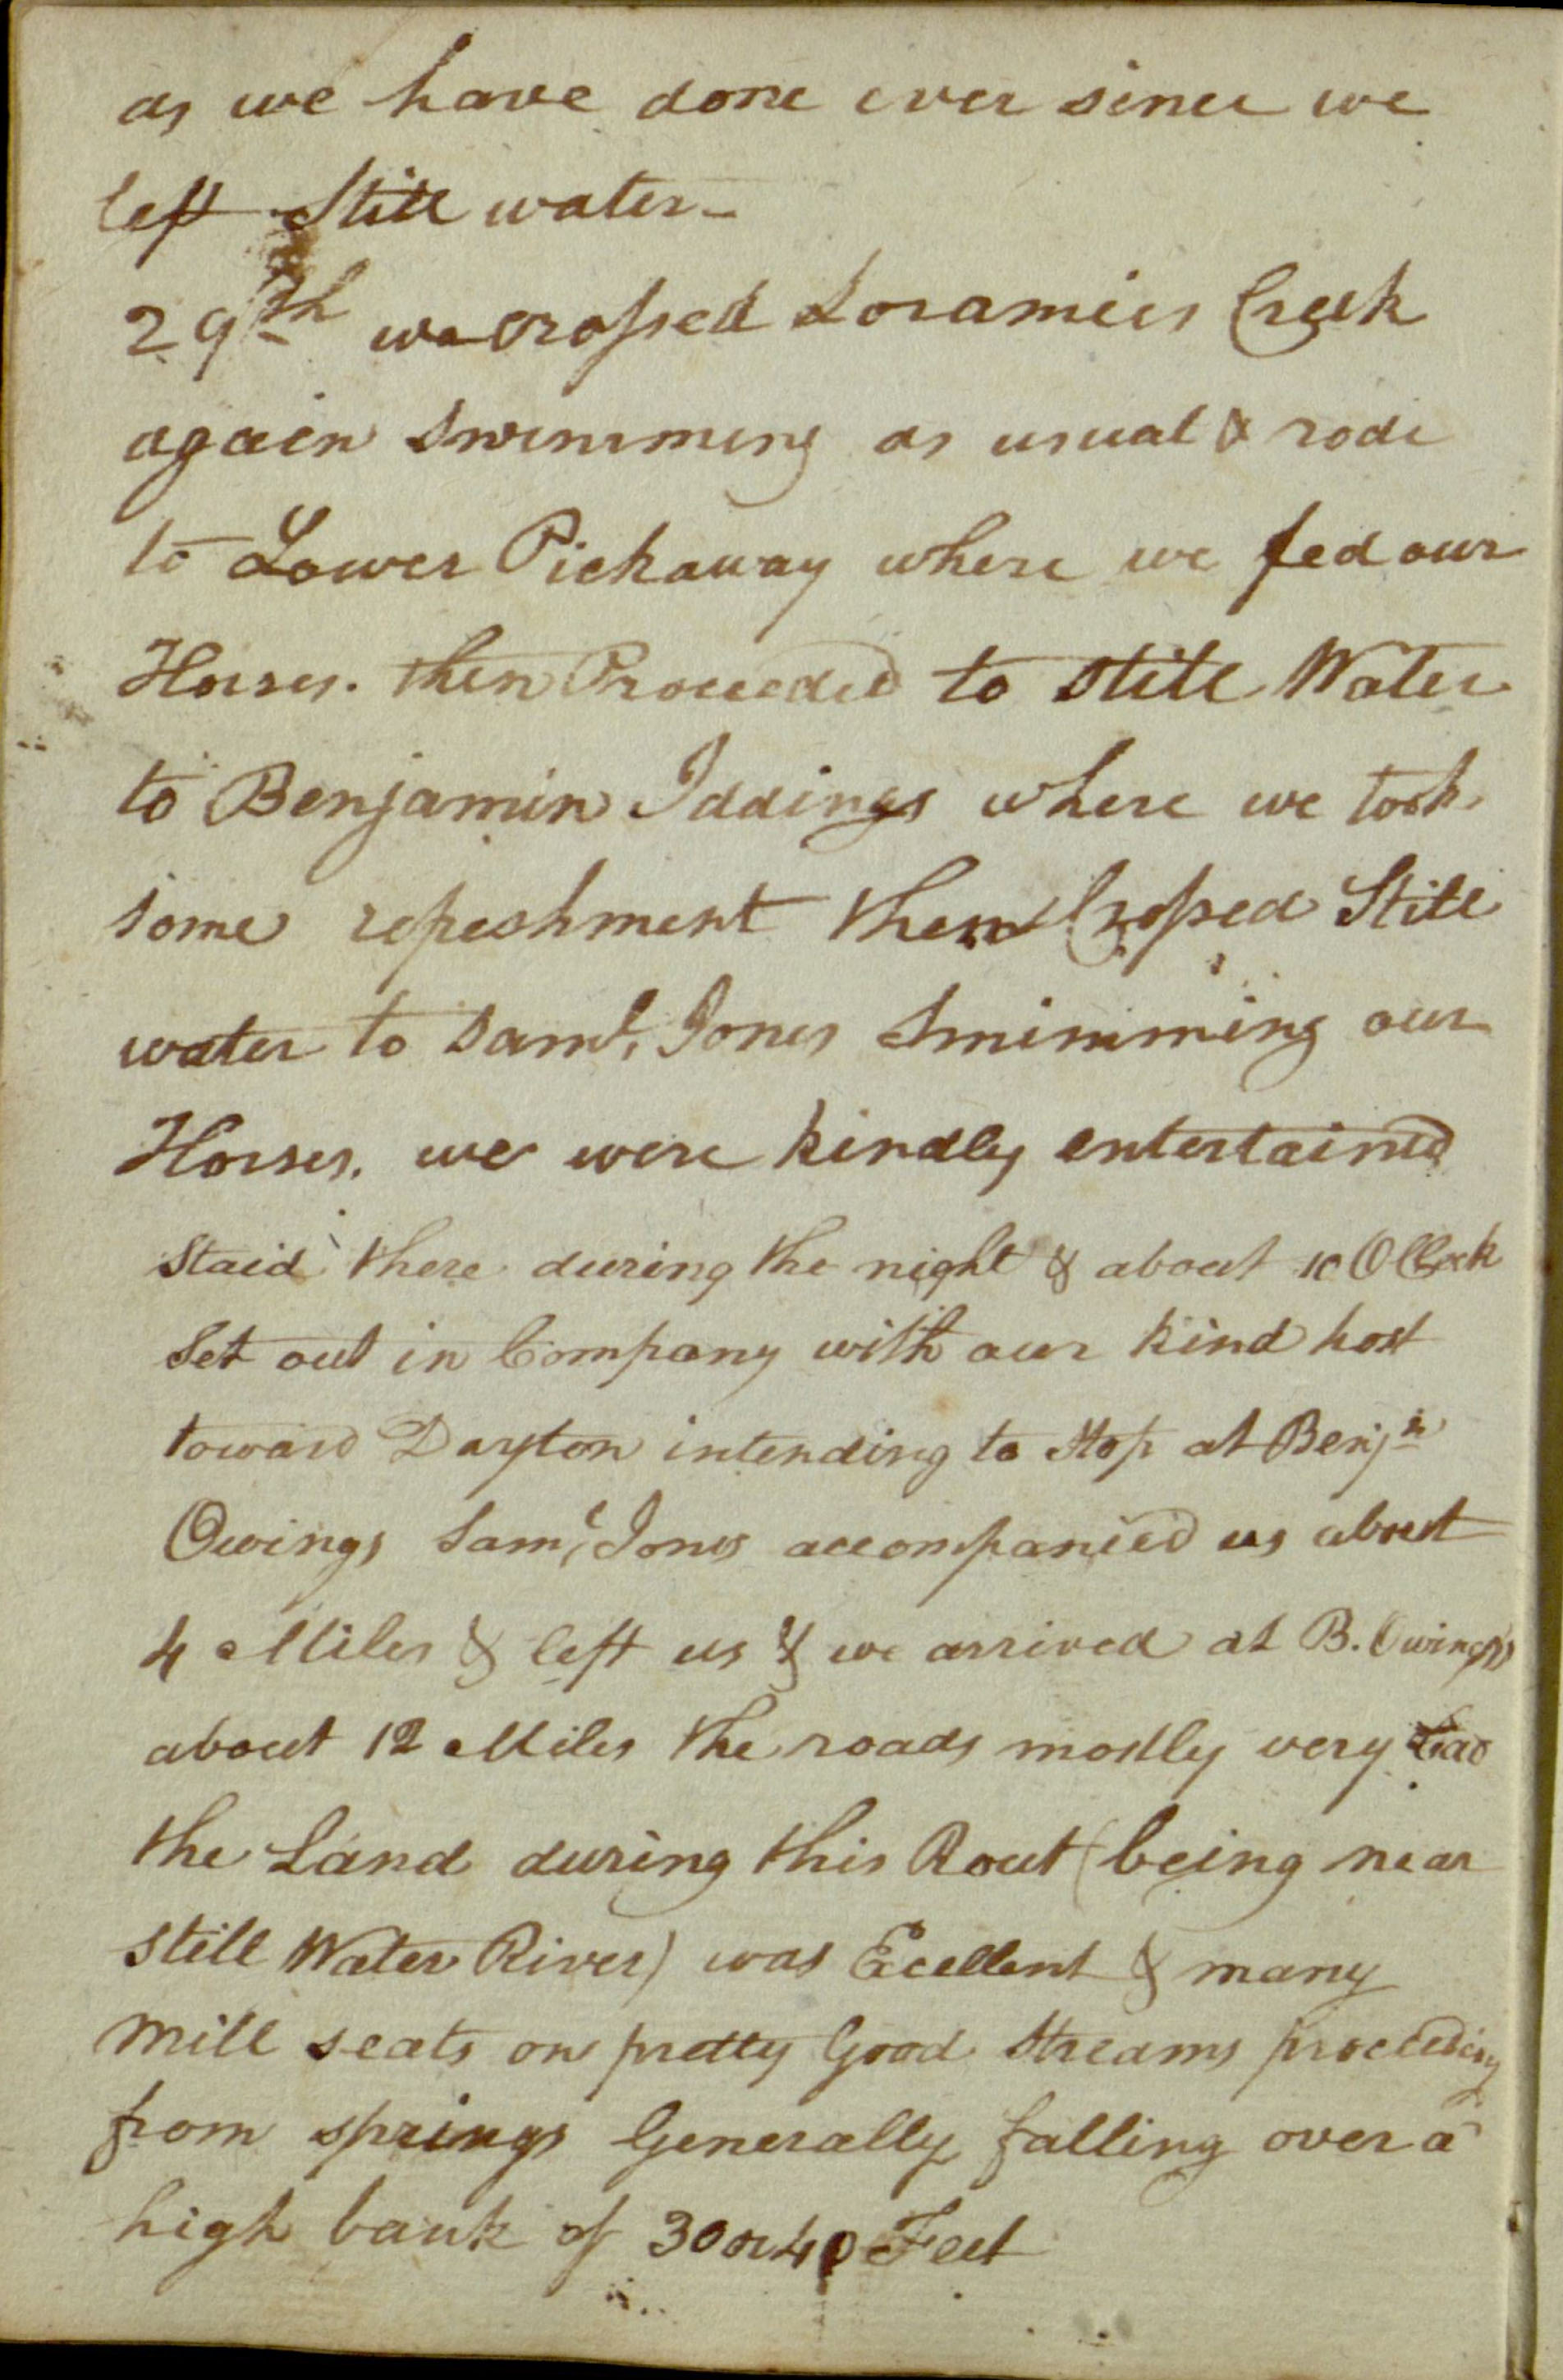 as we have done ever since we
left Still water-
29th we crossed Loramies Creek
again Swimming as usual & rode
to Lower Pickaway where we fed our
Horses. then Proceeded to Still Water
to Benjamin Iddings where we took
some refreshment then Crossed Still
water to Saml, Jones Swimming our
Horses. we were kindly entertained
Staid there during the night & about 10 OClock
Set out in Company with our kind host
toward Dayton intending to Stop at Benjn
Owings Saml, Jones accompanied us about
4 Miles & left us & we arrived at B. Owings's
about 12 Miles the roads mostly very bad
the Land during this Rout (being near
still Water River) was Ecellent & many
mill seats on pretty Good Streams proceeding
from springs Generally falling over a
high bank of 30 or 40 Feet